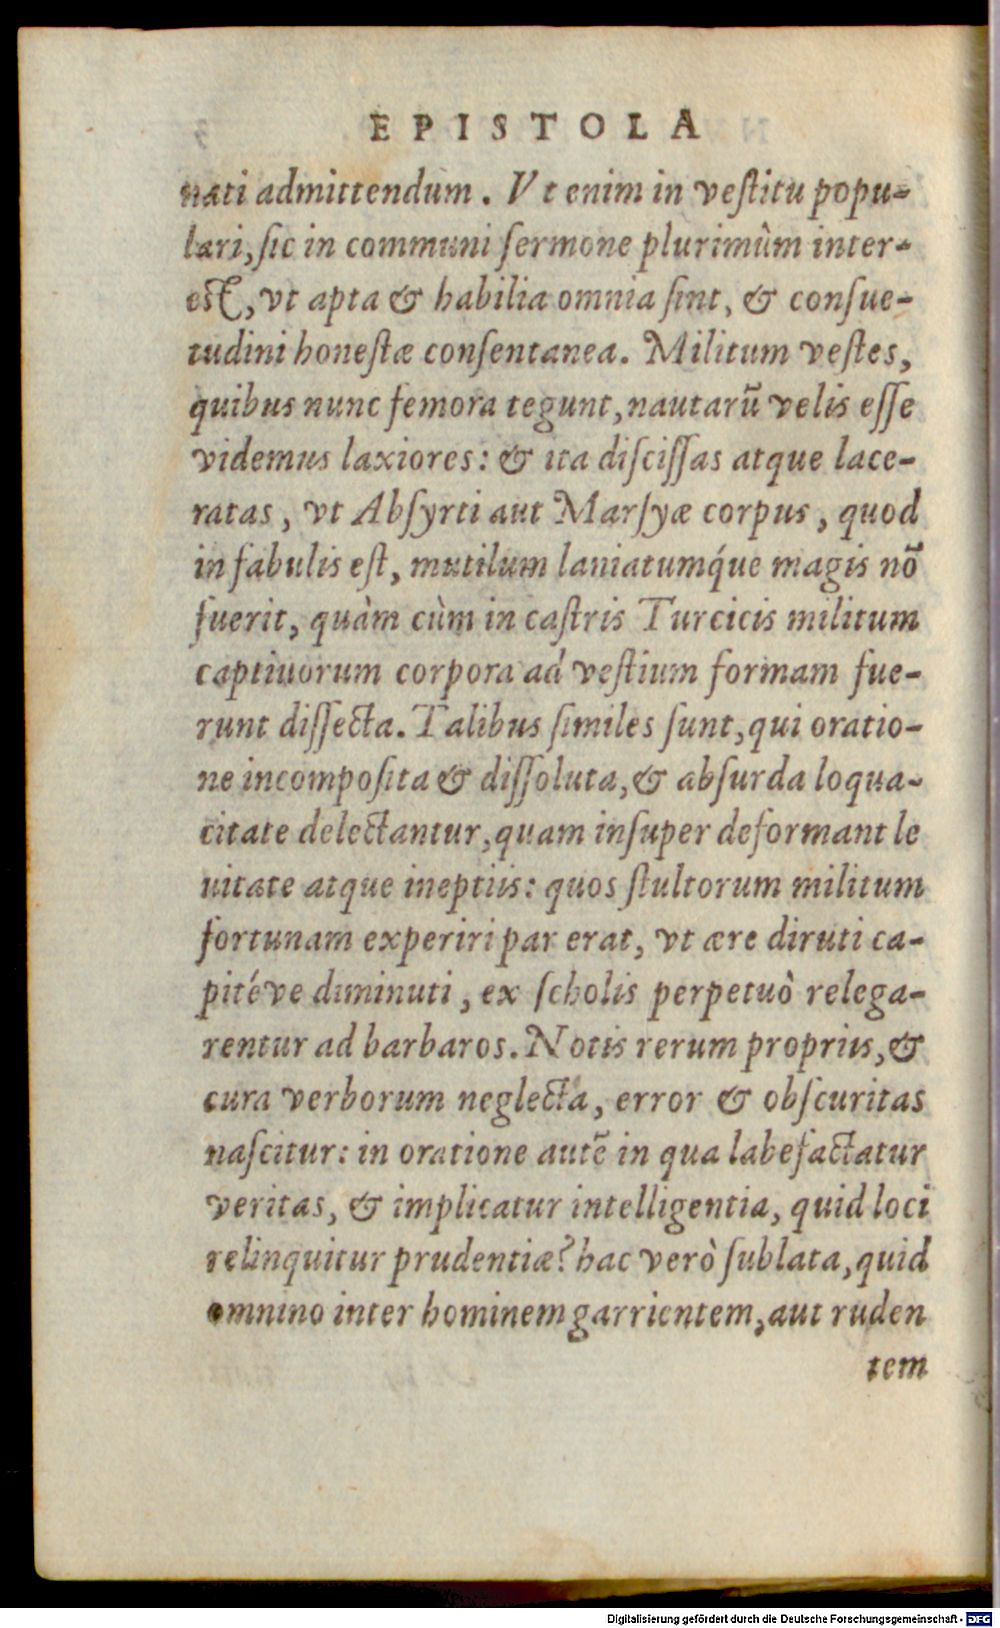 EPISTOLA
nati admittendum. Vt enim in vestitu popu-
lari, sic in communi sermone plurimùm inter-
est, vt apta & habilia omnia sint, & consue-
tudini honestæ consentanea. Militum vestes,
quibus nunc femora tegunt, nautarū velis esse
videmus laxiores: & ita discissas atque lace-
ratas, vt Absyrti aut Marsyæ corpus, quod
in fabulis est, mutilum laniatumq́ue magis nō
fuerit, quàm cùm in castris Turcicis militum
captiuorum corpora ad vestium formam fue-
runt dissecta. Talibus similes sunt, qui oratio-
ne incomposita & dissoluta, & absurda loqua-
citate delectantur, quam insuper deformant le
uitate atque ineptiis: quos stultorum militum
fortunam experiri par erat, vt ære diruti ca-
pitéve diminuti, ex scholis perpetuò relega-
rentur ad barbaros. Notis rerum propriis, &
cura verborum neglecta, error & obscuritas
nascitur: in oratione autē in qua labefactatur
veritas, & implicatur intelligentia, quid loci
relinquitur prudentiæ? hac verò sublata, quid
omnino inter hominem garrientem, aut ruden
tem
Digitalisierung gefördert durch die Deutsche Forschungsgemeinschaft - DFG